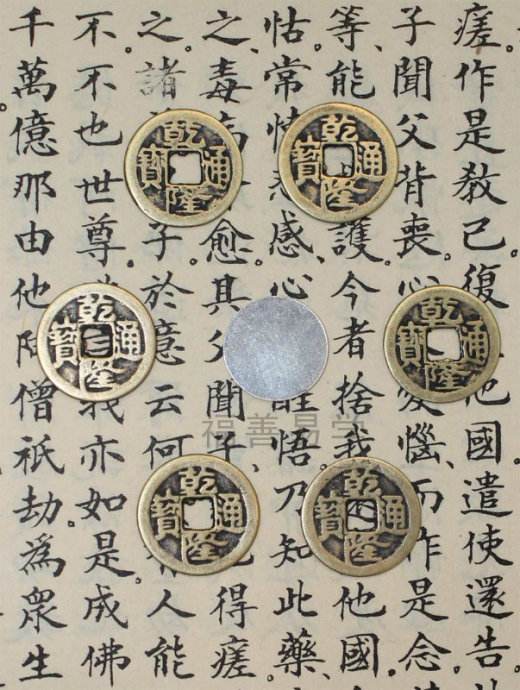 瘥。作是教已復他國遣使還告
子聞父背喪。心憂惱、而作是念、
等、能護今者捨我他國
怙、常懷悲感。心醒悟、乃知此藥、
之、毒愈。其父聞子、得瘥
之。諸子、於意云何、人能
不。不也、世尊。我亦如是、成佛
千萬億那由他阿僧祇劫、為眾生
乾隆通寶
乾隆通寶
乾隆通寶
乾隆通寶
乾隆通寶
乾隆通寶
福善易学